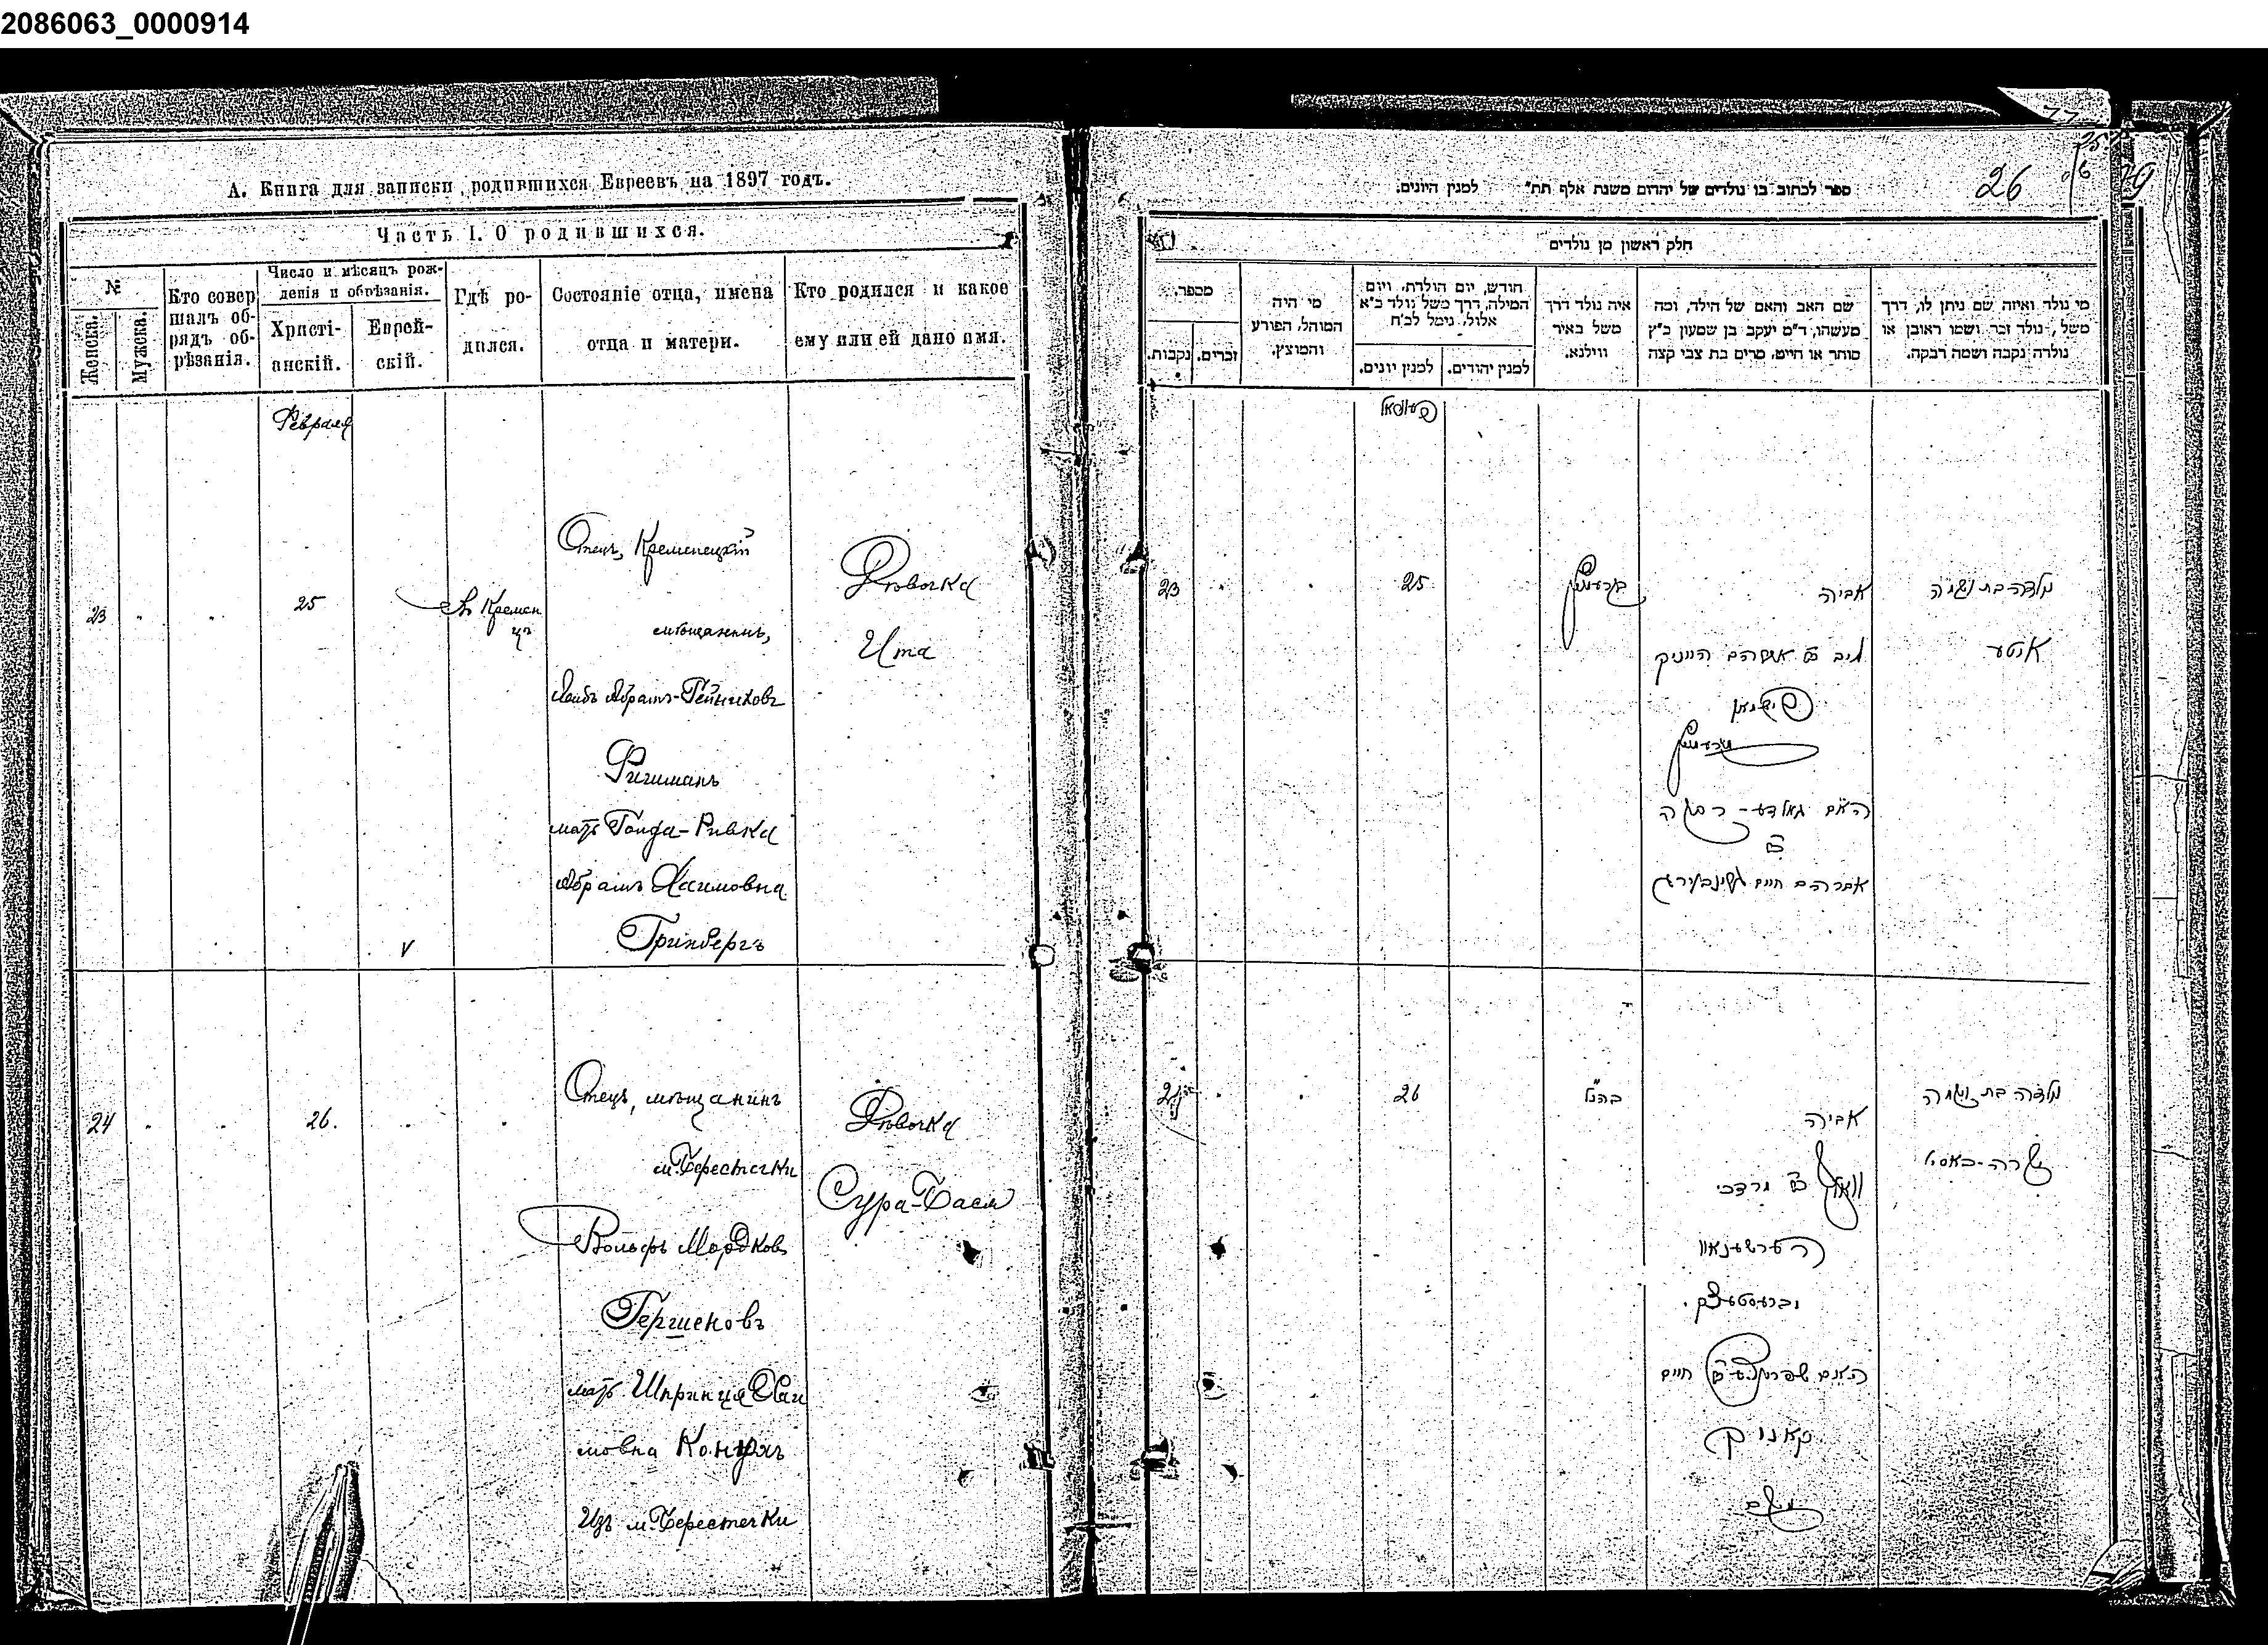 2086063_0000914
А. Книга для записки родившихся Евреевъ на 1897 годъ.
Часть I. О родившихся.
№
Женска.
Мужска.
Кто совер
шалъ об-
рядъ об-
рѣзанія.
Число и мѣсяцъ рож-
денія и обрѣзанія.
Христі-
анскій.
Еврей-
скій.
Гдѣ ро-
дился.
Состояніе отца, имена
отца и матери.
Кто родился и какое
ему или ей дано имя.
Февраля
23
25
Кременцъ
Отецъ, Кременецкій
мѣщанинъ,
Лейбъ Абрамъ-Гейниховъ
мать Гольда-Ривка
Абрамъ Хаимовна
Гринбергъ
Дѣвочка
Ита
24
26.
Отецъ, мѣщанинъ
м. Берестечки
Вольфъ Мордков
Гершеновъ
мать Шпринця Хаи
мовна
Изъ м. Берестечки
Дѣвочка
Сура-Бася
26
ספר לכתוב בו נולדים של יהדום משנת אלף תת" למנין היונים.
חלק ראשון מן נולדים
מספר.
נקבות.
זכרים.
מי היה
המוהל, הפורע
והמוצץ.
חודש, יום הולדת, ויום
המילה, דרך משל נולד כ"א
אלול, נימל לכ"ח
למנין יונים.
למנין יהודים.
איה נולד דרך
משל באיר
ווילנא.
שם האב והאם של הילד, ומה
מעשהו, ד"מ יעקב בן שמעון כ"ץ
סוחר או חייט, מרים בת צבי קצה
מי נולד ואיזה שם ניתן לו, דרך
משל, נולד זכר ושמו ראובן או
נולדה נקבה ושמה רבקה.
23
25
אביה
ליב
האם גאלדע - רבקה
אברהם חיים גרינבערג
נולדה בת ושמה
איטע
24
26
בהנ"ל
אביה
וואלף ב"ר מרדכי
הערשענאוו
חיים
נולדה בת ושמה
שרה-באסי